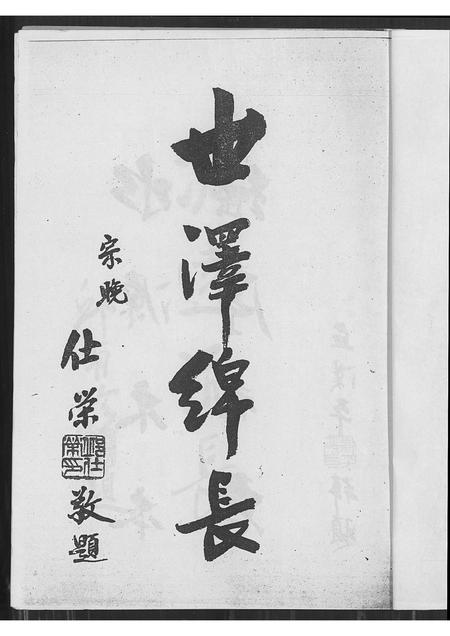 世澤綿長
宗晚仕榮敬題